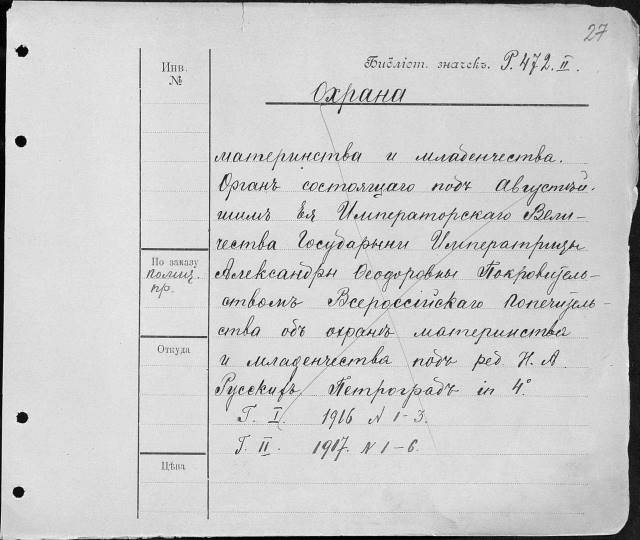 27
Инв.
№
Библіот. значекъ. Р. 472. II.
Охрана
материнства и младенчества.
Органъ состоящаго подъ Августѣй-
шимъ Ея Императорскаго Вели-
чества Государыни Императрицы
По заказу
полиц.
пр.
Александры Ѳеодоровны Покровитель-
ствомъ Всероссійскаго Попечитель-
ства объ охранѣ материнства
Откуда
и младенчества подъ ред. Н. А.
Русскихъ Петроградъ in 4°
Г. I. 1916 N 1-3.
Г. II. 1917. N 1-6.
Цѣна